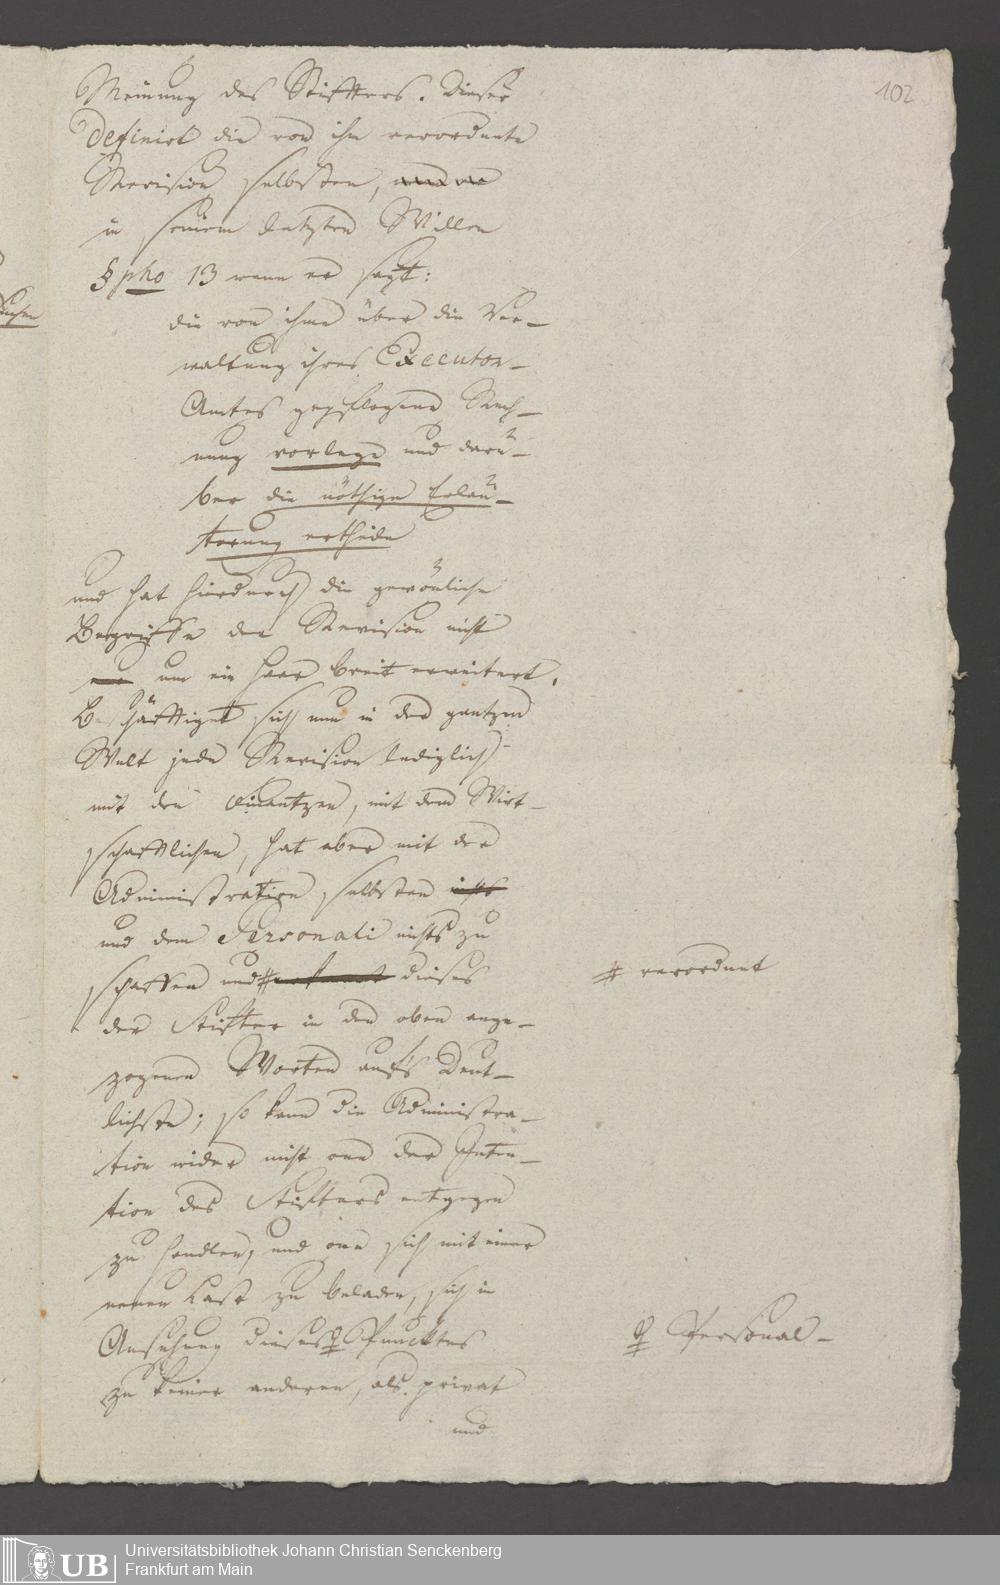 102
Meinung des Stifters. Dieser
definirt die von ihm verordnete
Revision selbsten,
in seinem letzten Willen
§pho 13 wenn er sagt:
die von ihme über die Ver-
waltung ihres Executor-
Amtes gepflogene Rech-
nung vorlege und darü-
ber die nöthige Erläu-
terung ertheile
und hat hierdurch die gewönliche
Begriffe der Revision nicht
um ein Haar breit erweitert.
Beschäftiget sich nun in der gantzen
Welt jede Revision lediglich
mit den Finantzen, mit dem Wirt-
schaftlichen, hat aber mit der
Administration selbsten
und dem Personali nichts zu
schaffen und # dieses
# verordnet
der Stifter in den oben ange-
zogenen Worten aufs Deut-
lichste; so kann die Administra-
tion wider nicht one der Inten-
tion des Stifters entgegen
zu handlen, und one sich mit einer
neuen Last zu beladen, sich in
Ansehung dieses Punctes
Personal-
zu keiner anderen, als privat
und
Universitätsbibliothek Johann Christian Senckenberg
Frankfurt am Main
UB